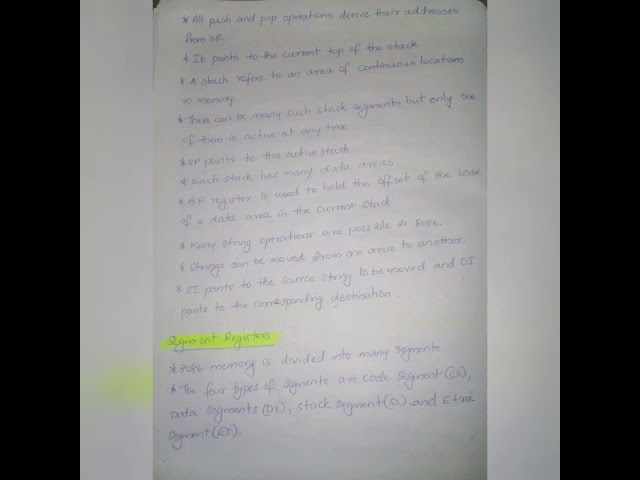 * All push and pop operations derive their addresses
from SP.
* It points to the current top of the stack.
* A stack refers to an area of continuous locations
in memory.
* There can be many such stack segments but only one
of them is active at any time.
* SP points to the active stack
* Each stack has many data areas.
* BP register is used to hold the offset of the base
of a data area in the current stack
* Many string operations are possible in 8086.
* Strings can be moved from one area to another.
* SI points to the source string to be moved and DI
points to the corresponding destination.
Segment Registers
* 8086 memory is divided into many segments.
* The four types of segments are code segment (CS),
Data segments (DS), stack segment (SS) and Extra
segment (ES).